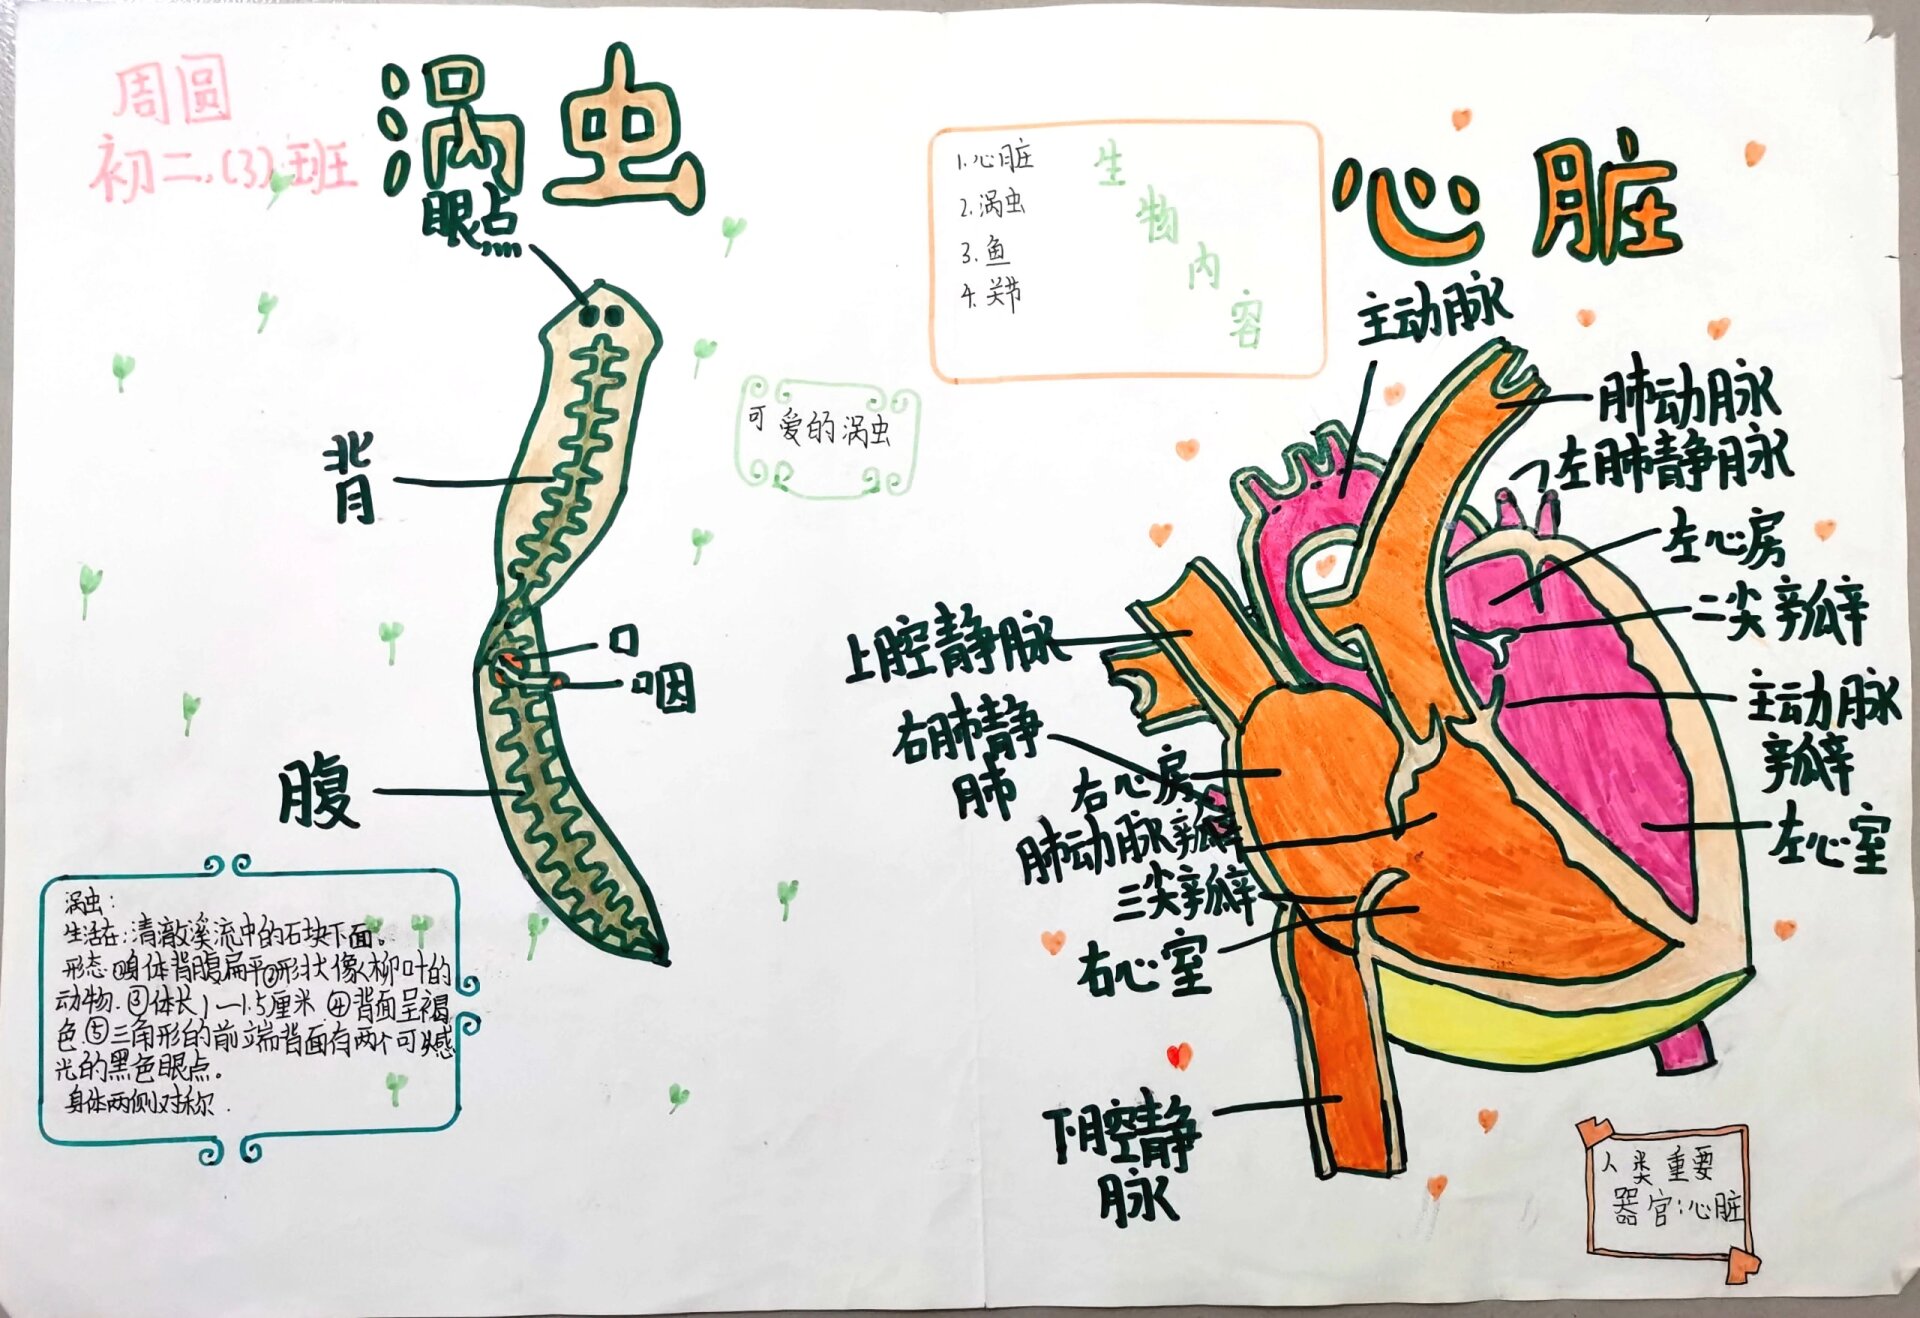 周圆
初二.(3)班
涡虫
眼点
背
口
咽
腹
可爱的涡虫
涡虫:
生活在:清澈溪流中的石块下面。
形态:①身体背腹扁平②形状像柳叶的
动物.③体长1—1.5厘米.④背面呈褐
色.⑤三角形的前端背面有两个可以感
光的黑色眼点。
身体两侧对称.
1.心脏
2.涡虫
3.鱼
4.关节
生物内容
心脏
主动脉
肺动脉
左肺静脉
左心房
二尖瓣
主动脉
瓣
左心室
上腔静脉
右肺静
肺
右心房
肺动脉瓣
三尖瓣
右心室
下腔静
脉
人类重要
器官:心脏